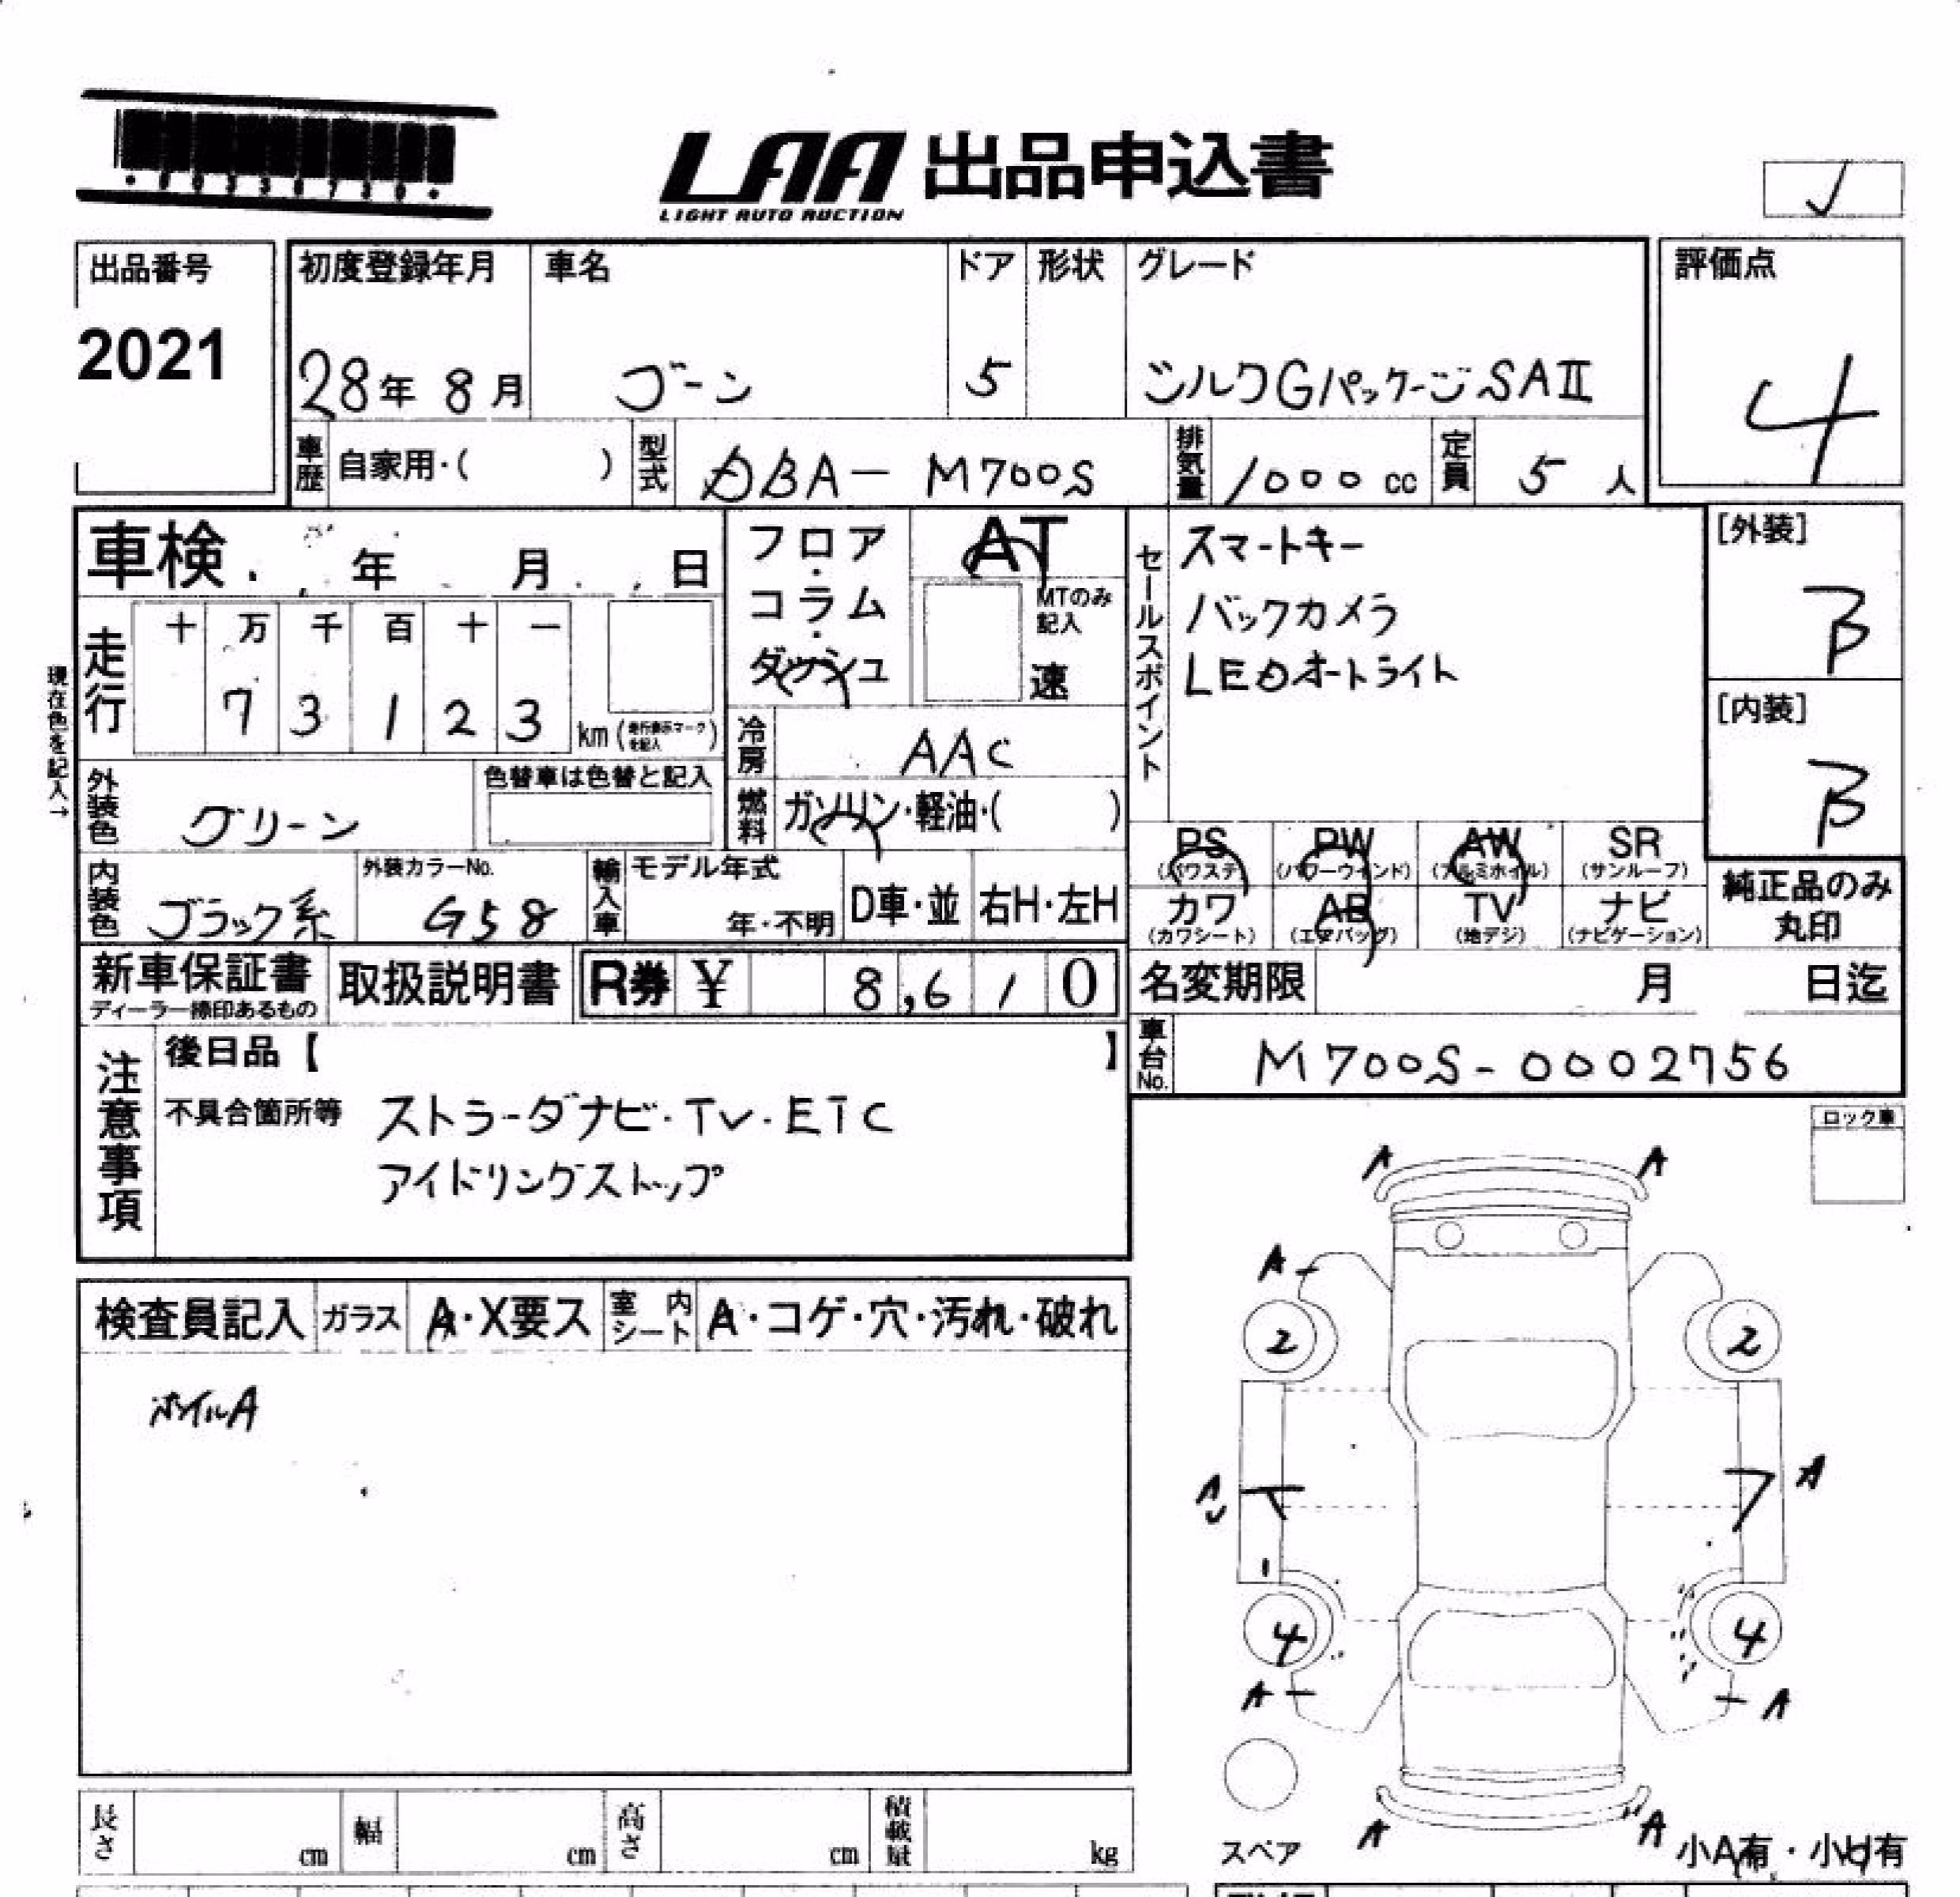 LAA 出品申込書
LIGHT AUTO AUCTION
✓
出品番号
2021
初度登録年月
28年 8月
車名
ブーン
ドア
5
形状
グレード
シルクGパッケージSAⅡ
評価点
4
車歴
自家用・( )
型式
DBA-M700S
排気量
1000 cc
定員
5 人
車検
年 月 日
フロア・コラム・ダッシュ
AT
MTのみ記入
速
セールスポイント
スマートキー
バックカメラ
LEDオートライト
[外装]
B
[内装]
B
現在色を記入→
走行
十 万 千 百 十 一
7 3 1 2 3
km (走行表示マークを記入)
冷房
AAC
燃料
ガソリン・軽油・( )
外装色
グリーン
色替車は色替と記入
内装色
ブラック系
外装カラーNo.
G58
輸入車
モデル年式
年・不明
D車・並
右H・左H
PS
(パワステ)
PW
(パワーウインド)
AW
(アルミホイル)
SR
(サンルーフ)
カワ
(カワシート)
AB
(エアバッグ)
TV
(地デジ)
ナビ
(ナビゲーション)
純正品のみ
丸印
新車保証書
ディーラー捺印あるもの
取扱説明書
R券 ¥ 8,610
名変期限
月 日迄
車台No.
M700S-0002756
注意事項
後日品【 】
不具合箇所等
ストラーダナビ・TV・ETC
アイドリングストップ
ロック車
検査員記入
ガラス
A・X要ス
室内シート
A・コゲ・穴・汚れ・破れ
ホイルA
A A
A
2 2
A
4 4
A A
A A
スペア
小A有・小U有
長さ
cm
幅
cm
高さ
cm
積載量
kg